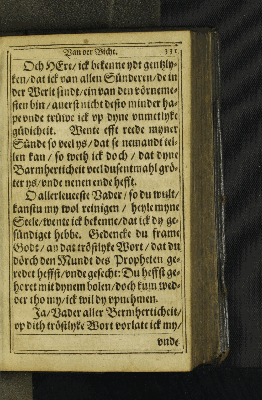 Van der Bicht. 331
Och HEre/ ick bekenne ydt gentzly-
ken/ dat ick van allen Sünderen/ de in
der Werlt sindt/ ein van den vörneme-
sten bin/ auerst nicht desto minder ha-
pe vnde trüwe ick vp dyne vnmetlyke
güdicheit. Wente efft rede myner
Sünde so veel ys/ dat se nemandt tel-
len kan/ so weth ick doch/ dat dyne
Barmherticheit veel dusentmahl grö-
ter ys/ vnde nenen ende hefft.
O allerleueste Vader/ so du wult/
kanstu my wol reinigen/ heyle myne
Seele/ wente ick bekenne/ dat ick dy ge-
sündiget hebbe. Gedencke du frame
Godt/ an dat tröstlyke Wort/ dat du
dörch den Mundt des Propheten ge-
redet heffst/ vnde gesecht: Du heffst ge-
horet mit dynem bolen/ doch kum wed-
der tho my/ ick wil dy vpnehmen.
Ja/ Vader aller Bermherticheit/
vp dith tröstlyke Wort vorlate ick my/
vnde